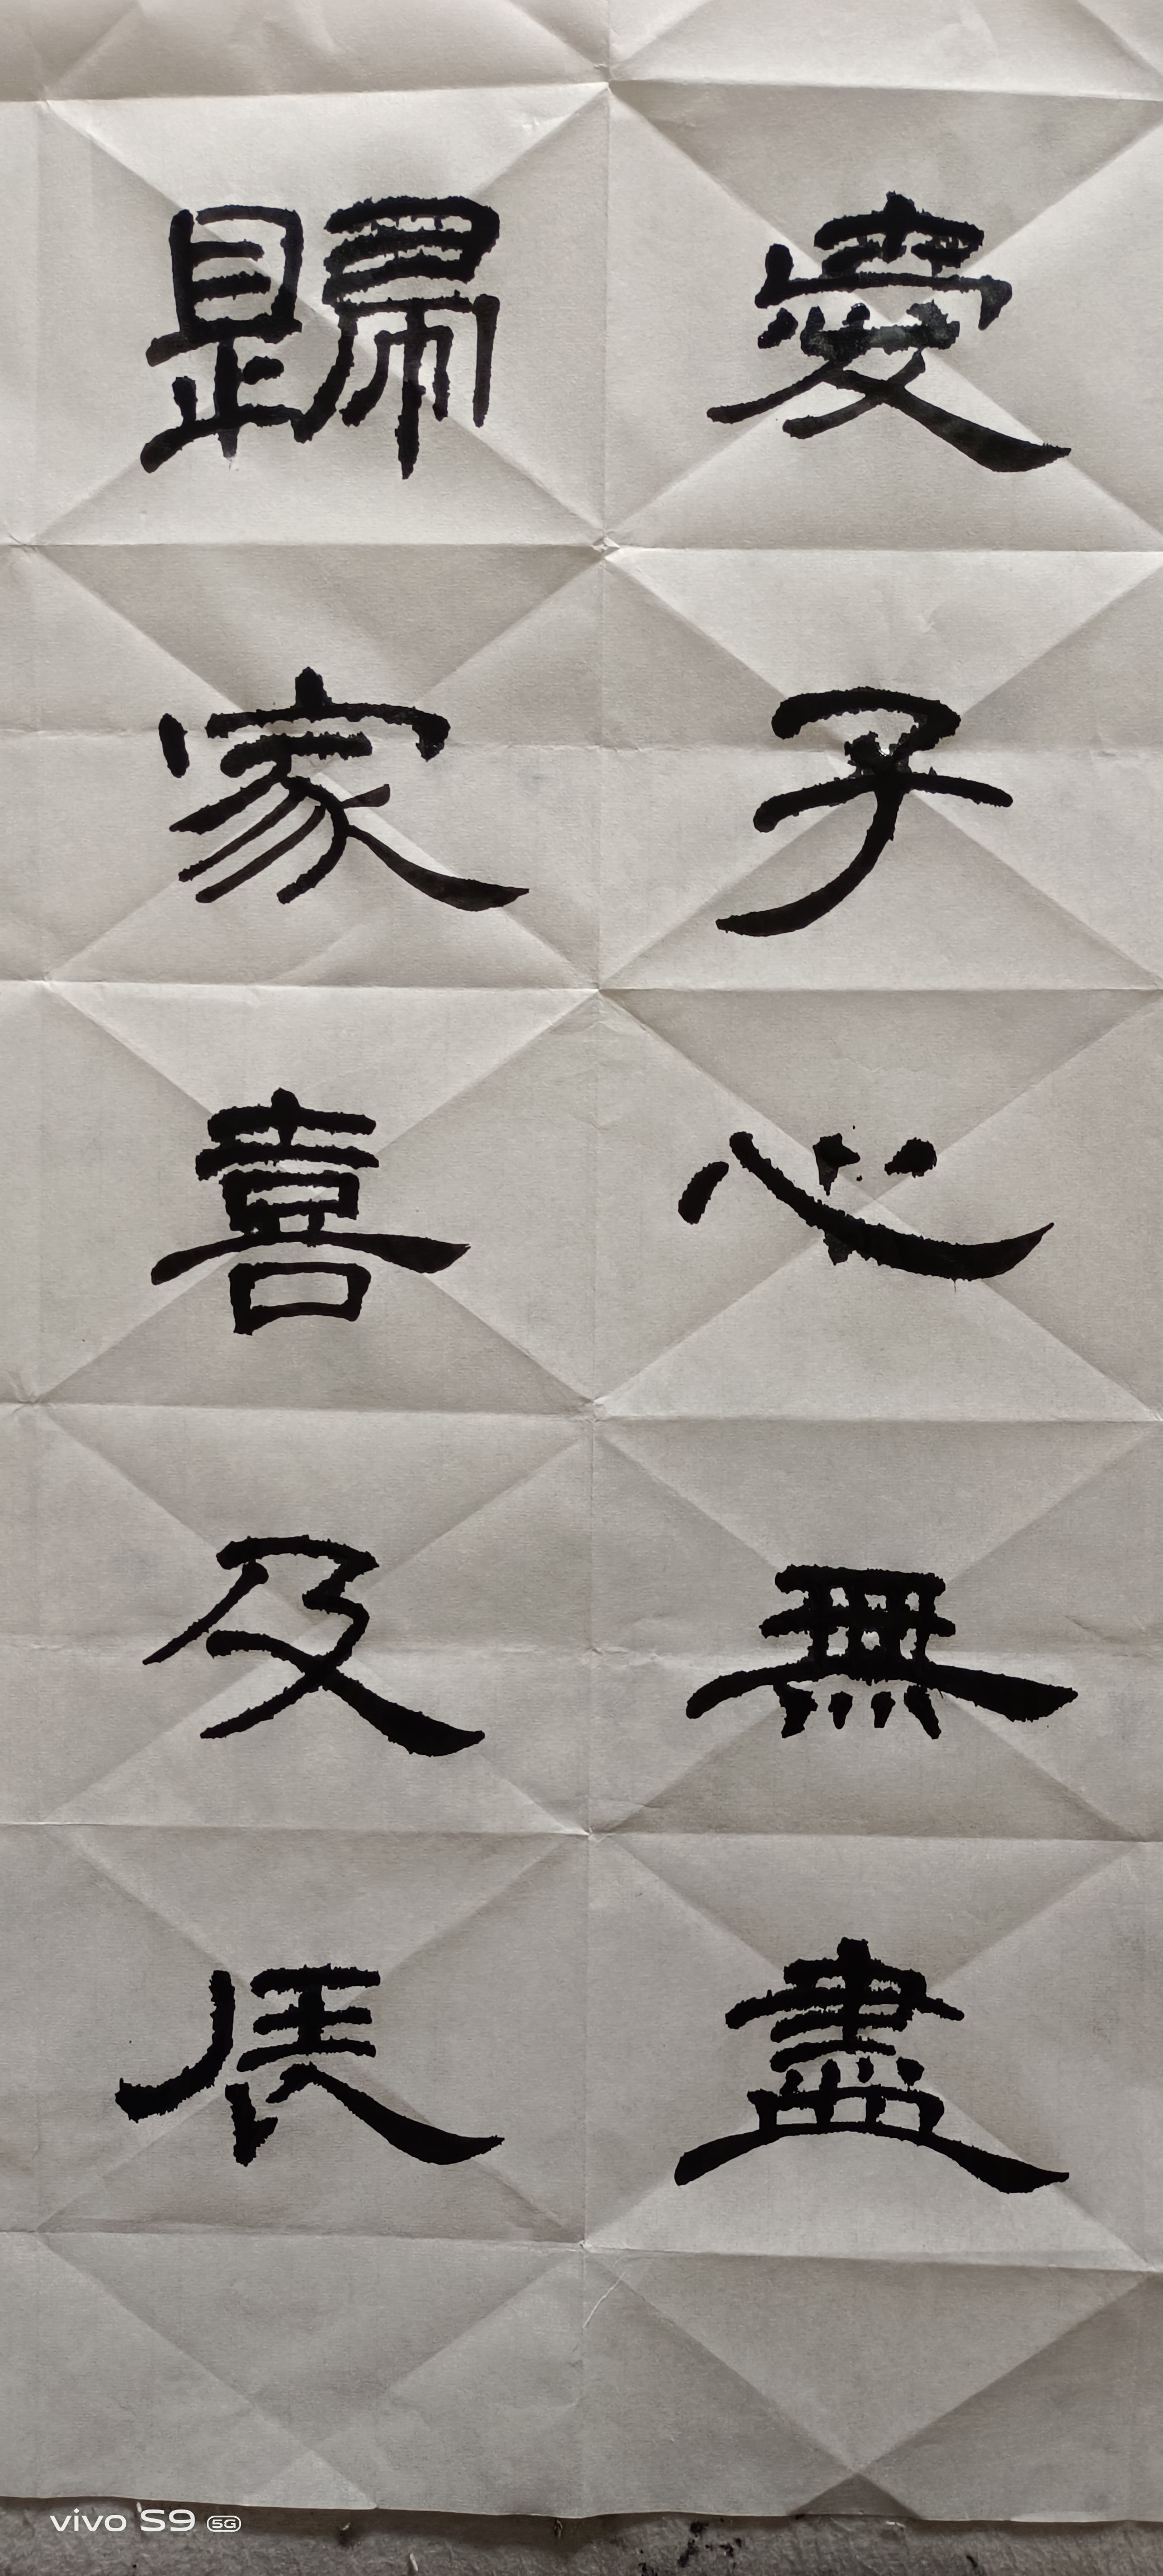 愛子心無盡
歸家喜及辰
vivo S9 5G